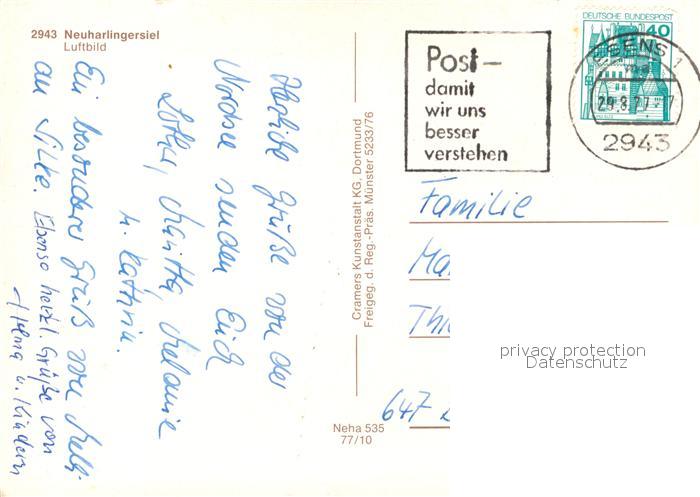 2943 Neuharlingersiel
Luftbild
Herzliche Grüße von der
Nordsee senden Euch
Lothar, Maritta, Melanie
u. Kathrin.
Ein besonderer Gruß von
an Silke. Ebenso herzl. Grüße von
Helma u. Kindern
Cramers Kunstanstalt KG, Dortmund
Freigeg. d. Reg.-Präs. Münster 5233/76
Neha 535
77/10
Post –
damit
wir uns
besser
verstehen
DEUTSCHE BUNDESPOST
40
ESENS 1
29.8.77
2943
Familie
Ma
Thi
647
privacy protection
Datenschutz